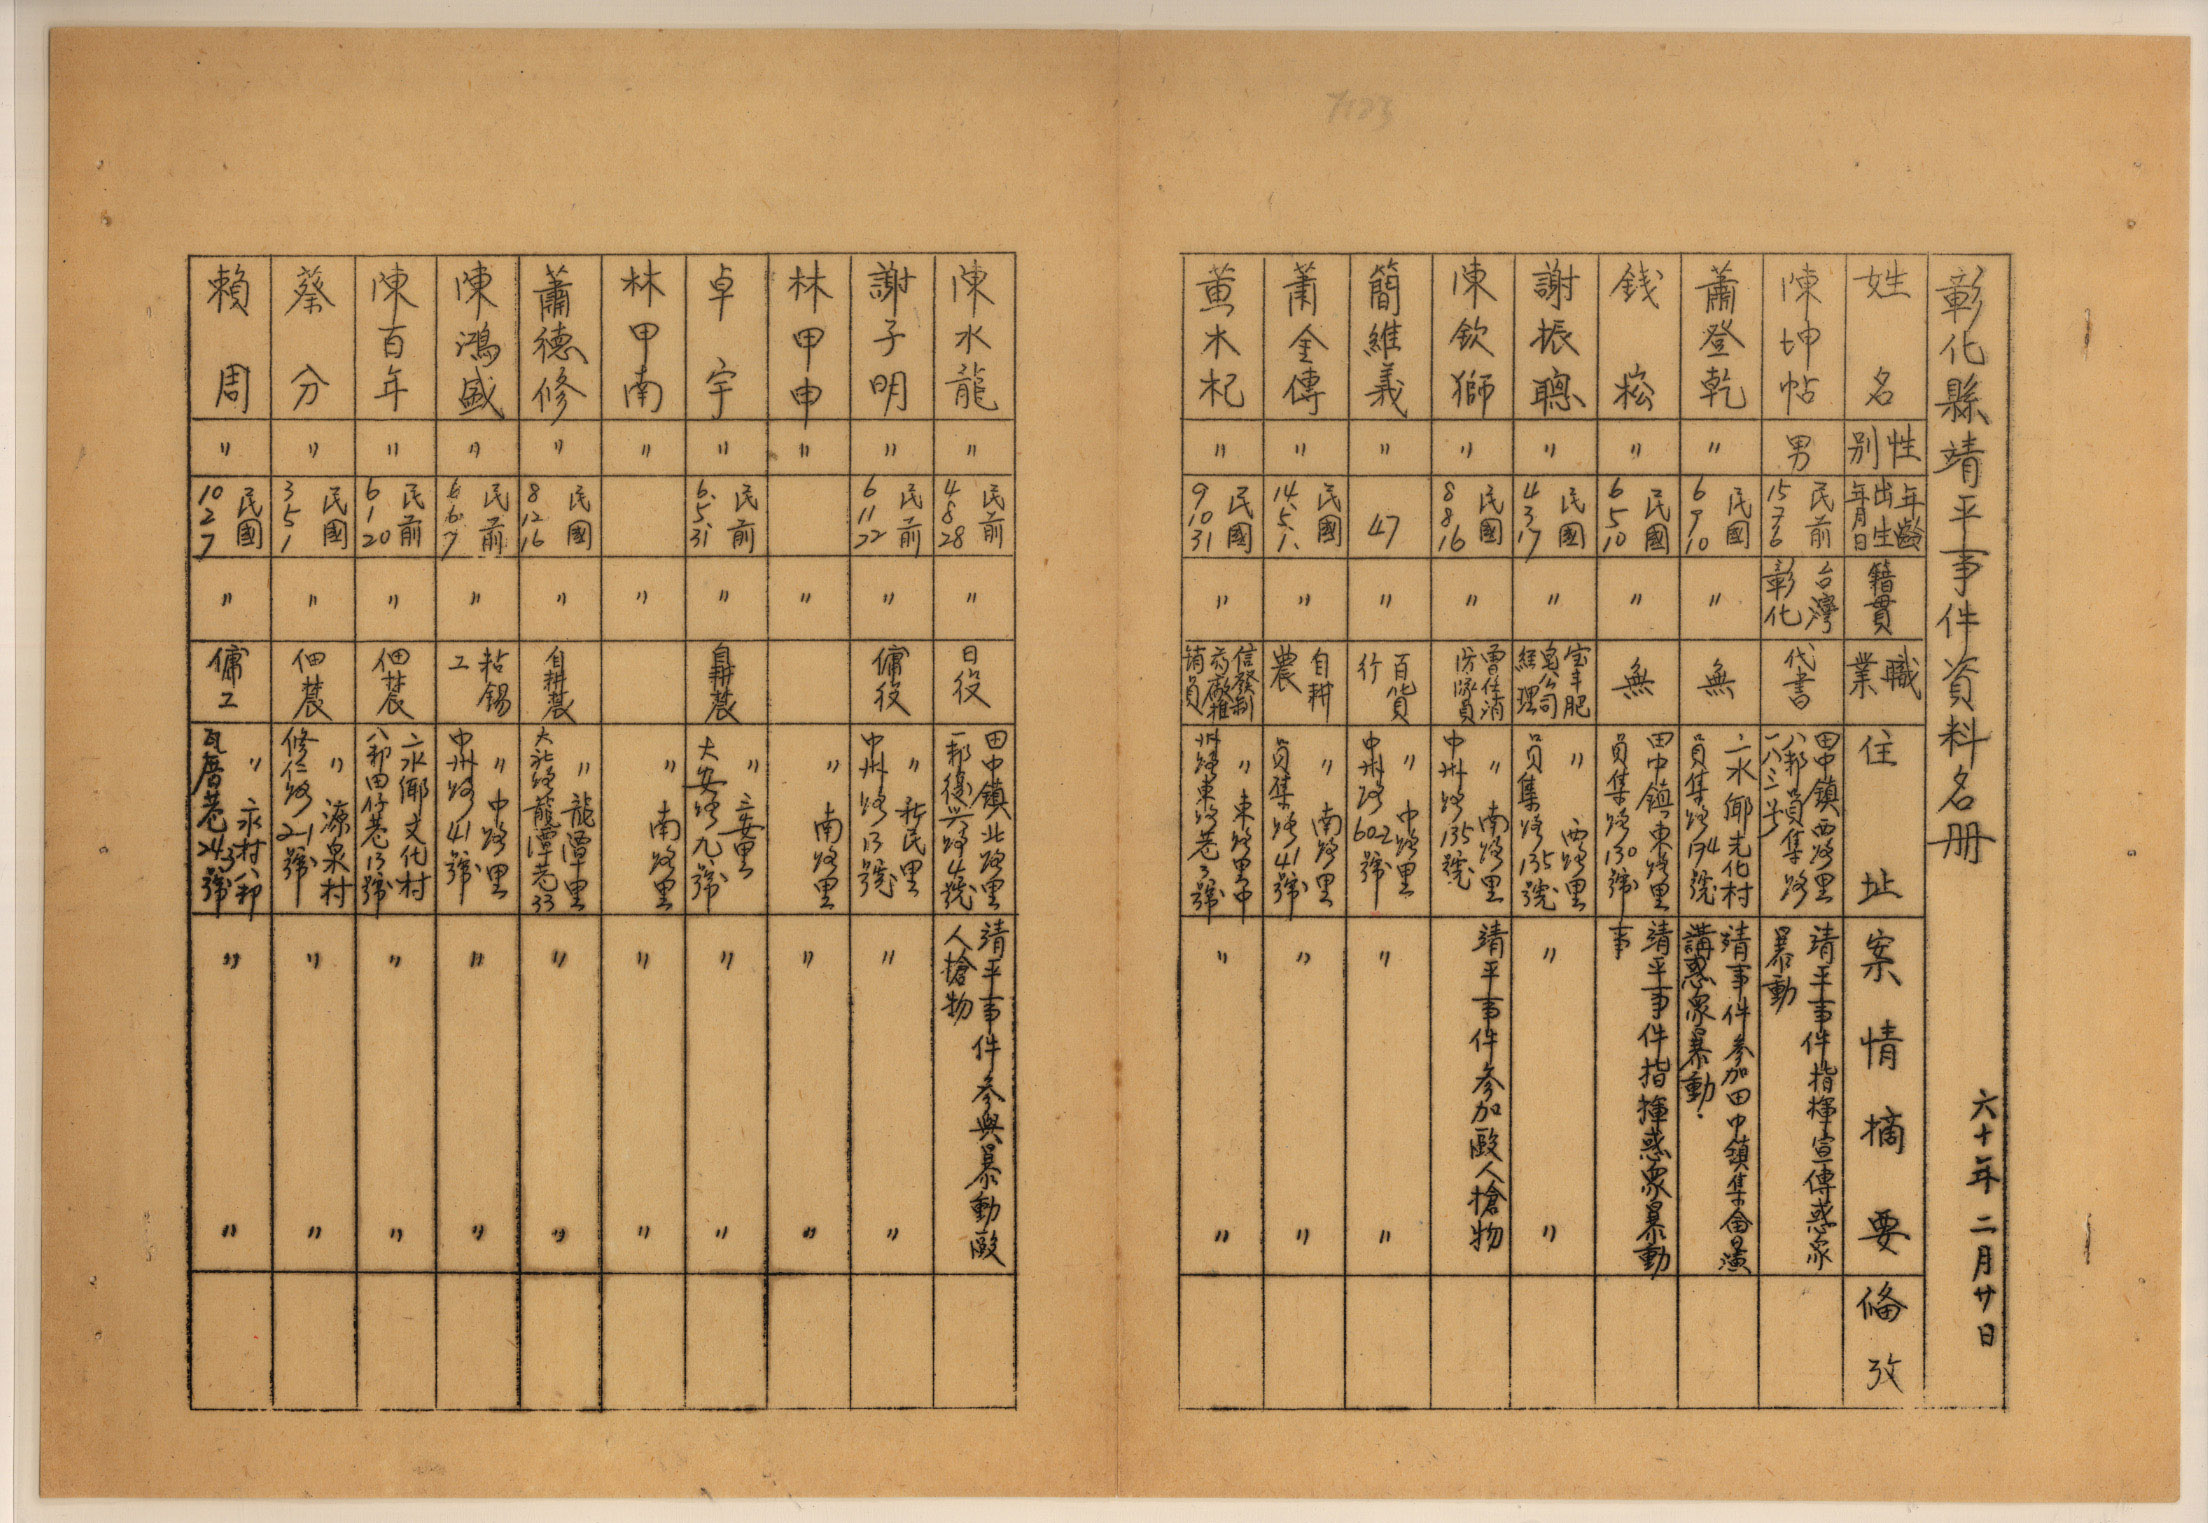 彰化縣靖平事件資料名冊
六十年二月廿日
姓名
性別
年齡
出生
年月日
籍貫
職業
住址
案情摘要
備攷
陳坤帖
男
民前
15 7 6
台灣
彰化
代書
田中鎮西路里
八鄰員集路
一八三号
靖平事件指揮宣傳惑眾
暴動
蕭登乾
〃
民國
6 9 10
〃
無
二水鄉光化村
員集路174號
靖事件參加田中鎮集會演
講惑眾暴動.
錢崧
〃
民國
6 5 10
〃
無
田中鎮東路里
員集路130號
靖平事件指揮惑眾暴動
事
謝振聰
〃
民國
4 3 17
〃
宝丰肥
皂公司
經理
〃西路里
員集路135號
〃〃
陳欽獅
〃
民國
8 8 16
〃
曾任消
防隊員
〃南路里
中州路135號
靖平事件參加毆人搶物
簡維義
〃
47
〃
百貨
行
〃中路里
中州路602號
〃〃
蕭金傳
〃
民國
14.5.1.
〃
自耕
農
〃南路里
員集路41號
〃〃
黃木杞
〃
民國
9 10 31
〃
信發制
药廠推
銷員
〃東路里中
州路東路巷3號
〃〃
陳水龍
〃
民前
4 8 28
〃
日役
田中鎮北路里
一鄰復興路4號
靖平事件參與暴動毆
人搶物
謝子明
〃
民前
6 11 22
〃
傭役
〃新民里
中州路13號
〃〃
林甲申
〃
〃
〃南路里
〃〃
卓宇
〃
民前
6.5.31
〃
自耕農
〃三安里
大安路九號
〃〃
林甲南
〃
〃
〃南路里
〃〃
蕭德修
〃
民國
8 12 16
〃
自耕農
〃龍潭里
大社路龍潭巷33
〃〃
陳鴻盛
〃
民前
6 6 7
〃
粘錫
工
〃中路里
中州路41號
〃〃
陳百年
〃
民前
6 1 20
〃
佃農
二水鄉文化村
八鄰田仔巷13號
〃〃
蔡分
〃
民國
3 5 1
〃
佃農
〃源泉村
修仁路2-1號
〃〃
賴周
〃
民國
10 2 7
〃
傭工
〃永村八鄰
瓦厝巷243號
〃〃